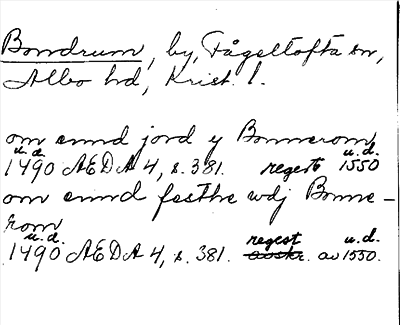 Bondrum, by, Fågeltofta sn,
Albo hd, Krist. l.
om emd jord y Bonnerom
u.d.
1490 ÆDA 4, s. 381. regest u.d. 1550
om emd festhe wdj Bonne-
rom
u.d.
1490 ÆDA 4, s. 381. regest avskr. av u.d. 1550.